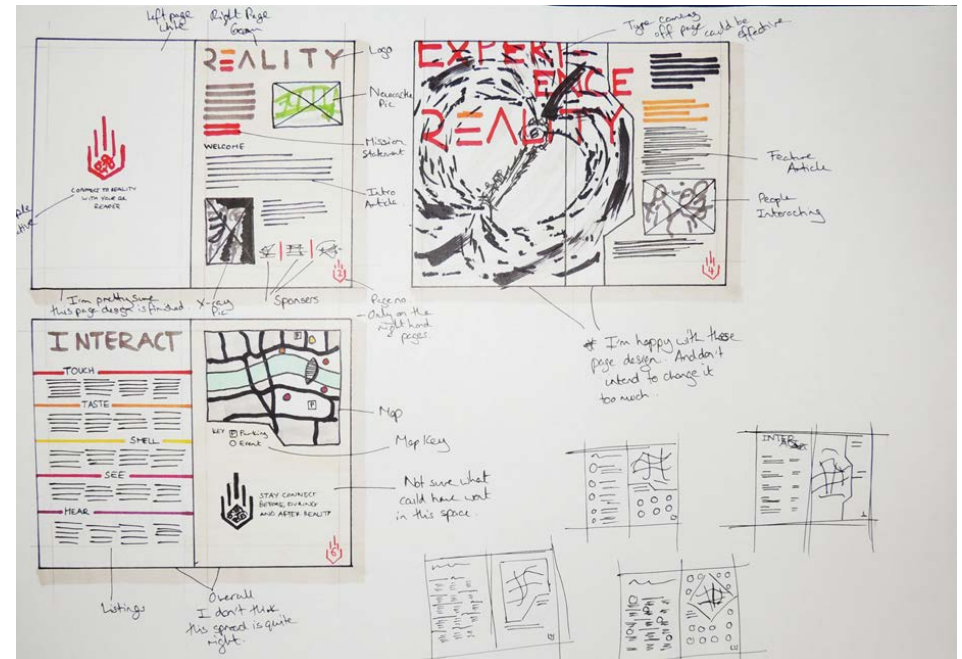 Left page
white
Right Page
Cream
REALITY
Logo
Newcastle
Pic
Mission
Statement
WELCOME
Intro
Article
CONNECT TO REALITY
WITH YOUR QR
READER
2
I'm pretty sure
this page design is finished.
X-ray
Pic
Sponsers
Page no.
- Only on the
right hand
pages.
Type coming
off page could be
effective
EXPERI-
ENCE
REALITY
Feature
Article
People
Interacting
4
* I'm happy with these
page design. And don't
intend to change it
too much.
INTERACT
TOUCH
TASTE
SMELL
SEE
HEAR
P
P
KEY P Parking
O Event
Map
Map Key
STAY CONNECT
BEFORE DURING
AND AFTER REALITY
Not sure what
could have went
in this space.
6
Listings
Overall
I don't think
this spread is quite
right.
INTER